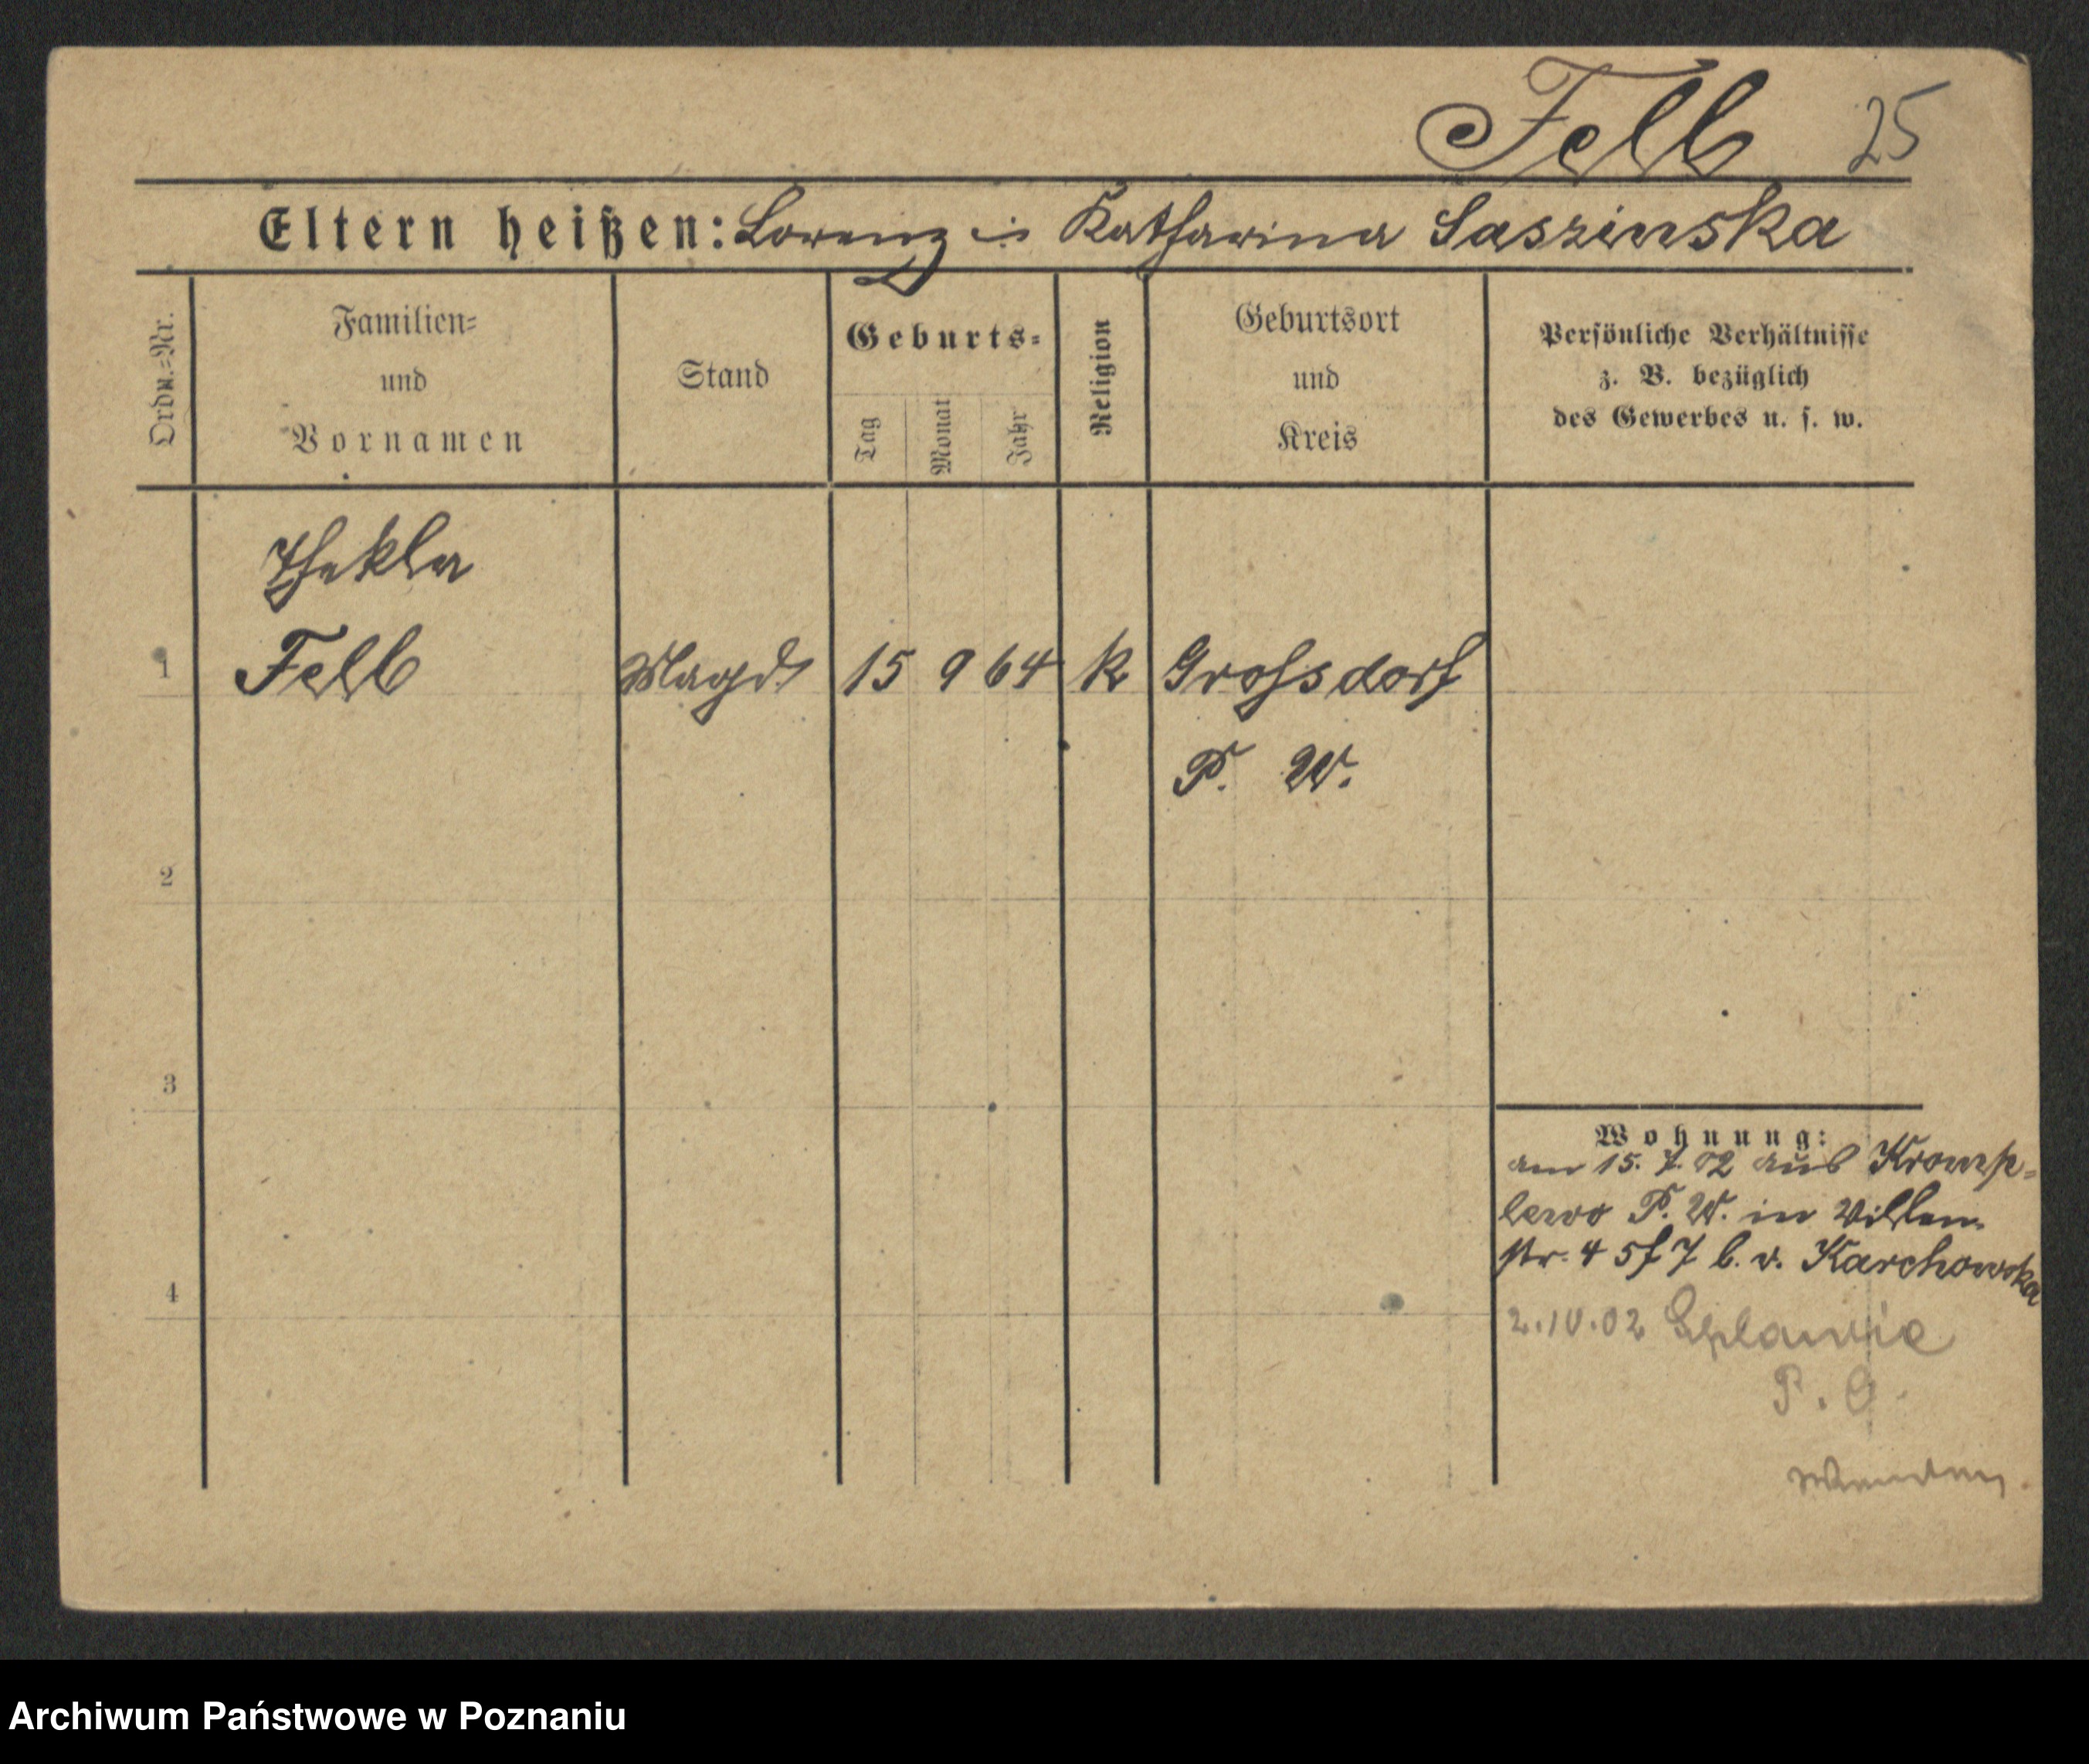 Felb 25
Eltern heißen: Lorenz u Katharina Saszinska
Ordn.=Nr.
Familien=
und
Vornamen
Stand
Geburts=
Tag
Monat
Jahr
Religion
Geburtsort
und
Kreis
Persönliche Verhältnisse
z. B. bezüglich
des Gewerbes u. s. w.
Thekla
1 Felb Magd 15 9 64 k Grossdorf
P. W.
2
3
Wohnung:
am 15. 7. 02 aus Kromp=
lewo P. W. in Villen
str. 4 b. v. Karchowska
4
2.10.02
P. O.
Wenden